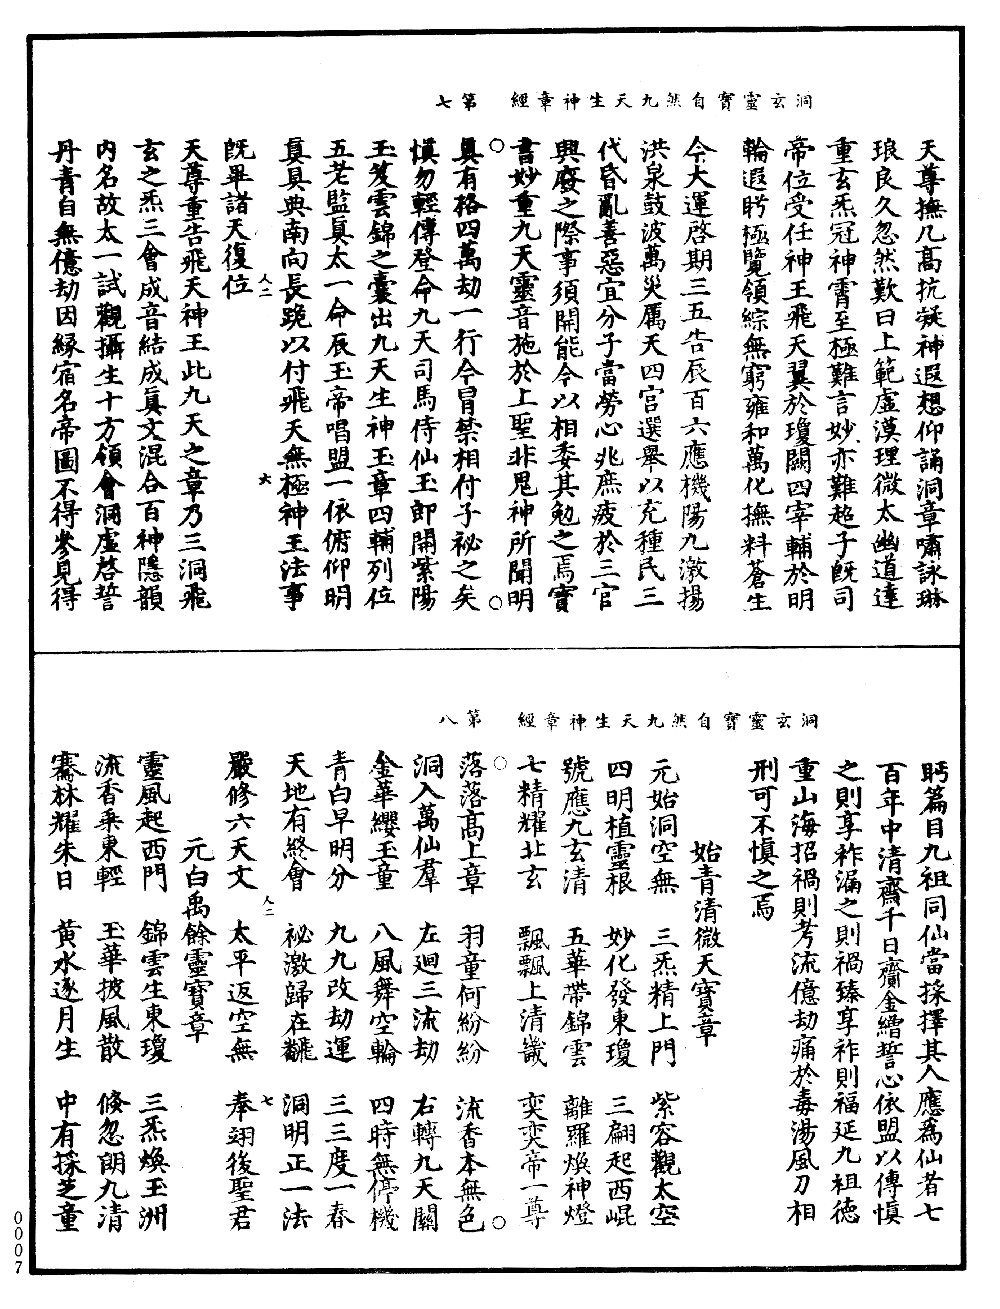 洞玄靈寶自然九天生神章經　第七
天尊撫几高抗凝神遐想仰誦洞章嘯詠琳
琅良久忽然歎曰上範虛漠理微太幽道達
重玄炁冠神霄至極難言妙亦難超子既司
帝位受任神王飛天翼於瓊闕四宰輔於明
輪遐眄極覽領綜無窮雍和萬化撫料蒼生
今大運啓期三五告辰百六應機陽九激揚
洪泉鼓波萬災厲天四宮選舉以充種民三
代昏亂善惡宜分子當勞心兆庶疲於三官
興廢之際事須開能今以相委其勉之焉寶
書妙重九天靈音施於上聖非鬼神所聞明
真有格四萬劫一行今冒禁相付子祕之矣
慎勿輕傳登命九天司馬侍仙玉郎開紫陽
玉笈雲錦之囊出九天生神玉章四輔列位
五老監真太一命辰玉帝唱盟一依俯仰明
真具典南向長跪以付飛天無極神王法事
既畢諸天復位
天尊重告飛天神王此九天之章乃三洞飛
玄之炁三會成音結成真文混合百神隱韻
內名故太一試觀攝生十方領會洞虛啓誓
丹青自無億劫因緣宿名帝圖不得參見得
人二
六
洞玄靈寶自然九天生神章經　第八
眄篇目九祖同仙當採擇其人應爲仙者七
百年中清齋千日齎金繒誓心依盟以傳慎
之則享祚漏之則禍臻享祚則福延九祖德
重山海招禍則考流億劫痛於毒湯風刀相
刑可不慎之焉
始青清微天寶章
元始洞空無　三炁精上門　紫容觀太空
四明植靈根　妙化發東瓊　三翩起西崐
號應九玄清　五華帶錦雲　離羅煥神燈
七精耀北玄　飄飄上清畿　奕奕帝一尊
落落高上章　羽童何紛紛　流香本無色
洞入萬仙羣　左迴三流劫　右轉九天關
金華纓玉童　八風舞空輪　四時無停機
青白早明分　九九改劫運　三三度一春
天地有終會　祕激歸在飜　洞明正一法
嚴修六天文　太平返空無　奉翊後聖君
人二
七
元白禹餘靈寶章
靈風起西門　錦雲生東瓊　三炁煥玉洲
流香乘東輕　玉華披風散　倏忽朗九清
騫林耀朱日　黃水逐月生　中有採芝童
0007